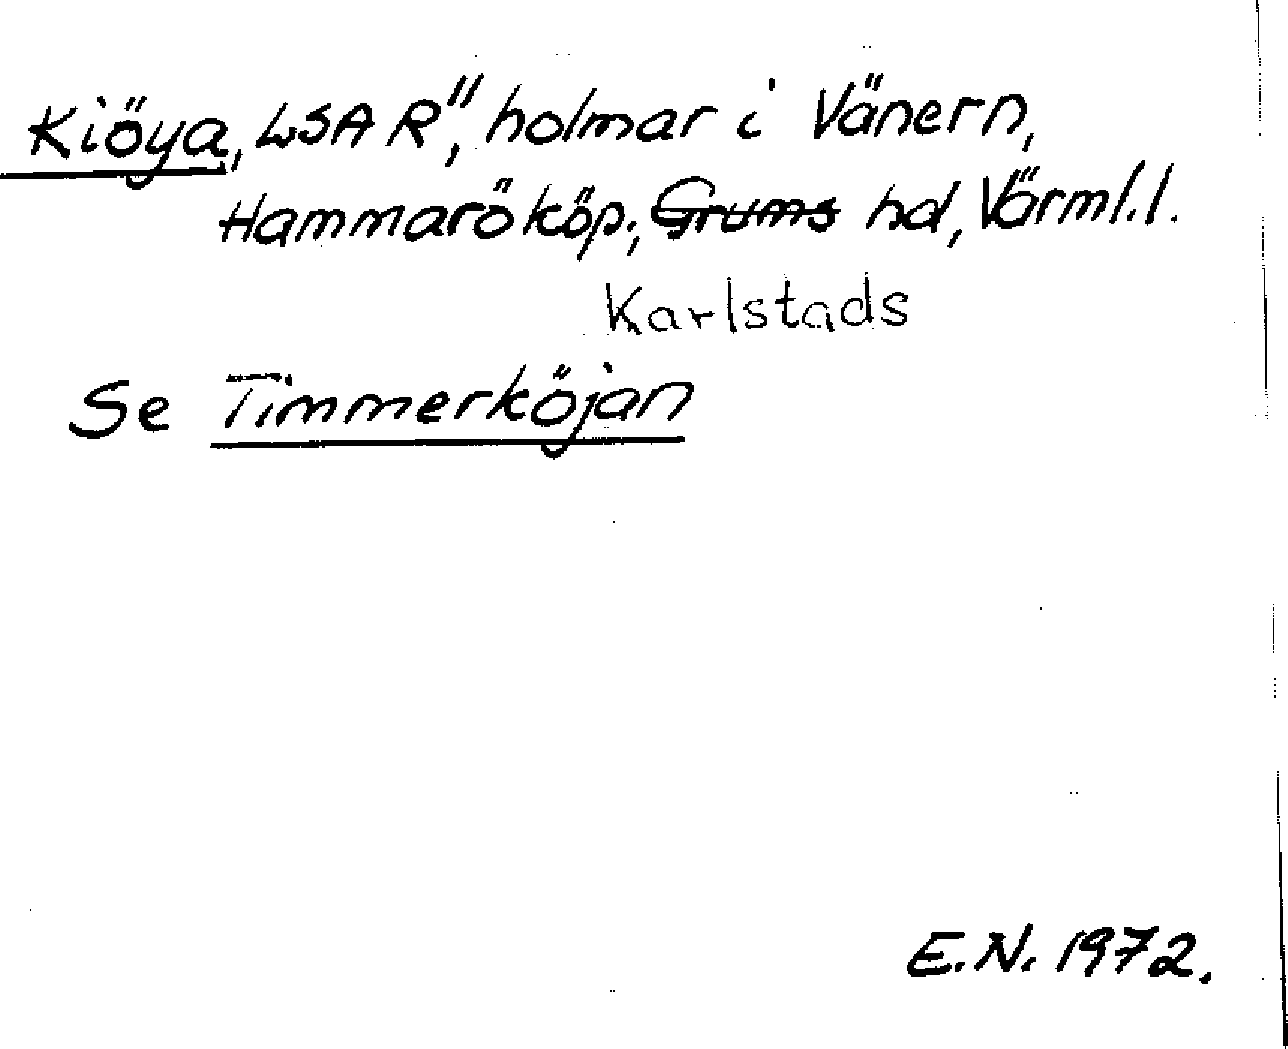 Kiöya, LSA R", holmar i Vänern,
Hammarö köp., Grums hd, Värml.l.
Karlstads
Se Timmerköjan
E.N. 1972.